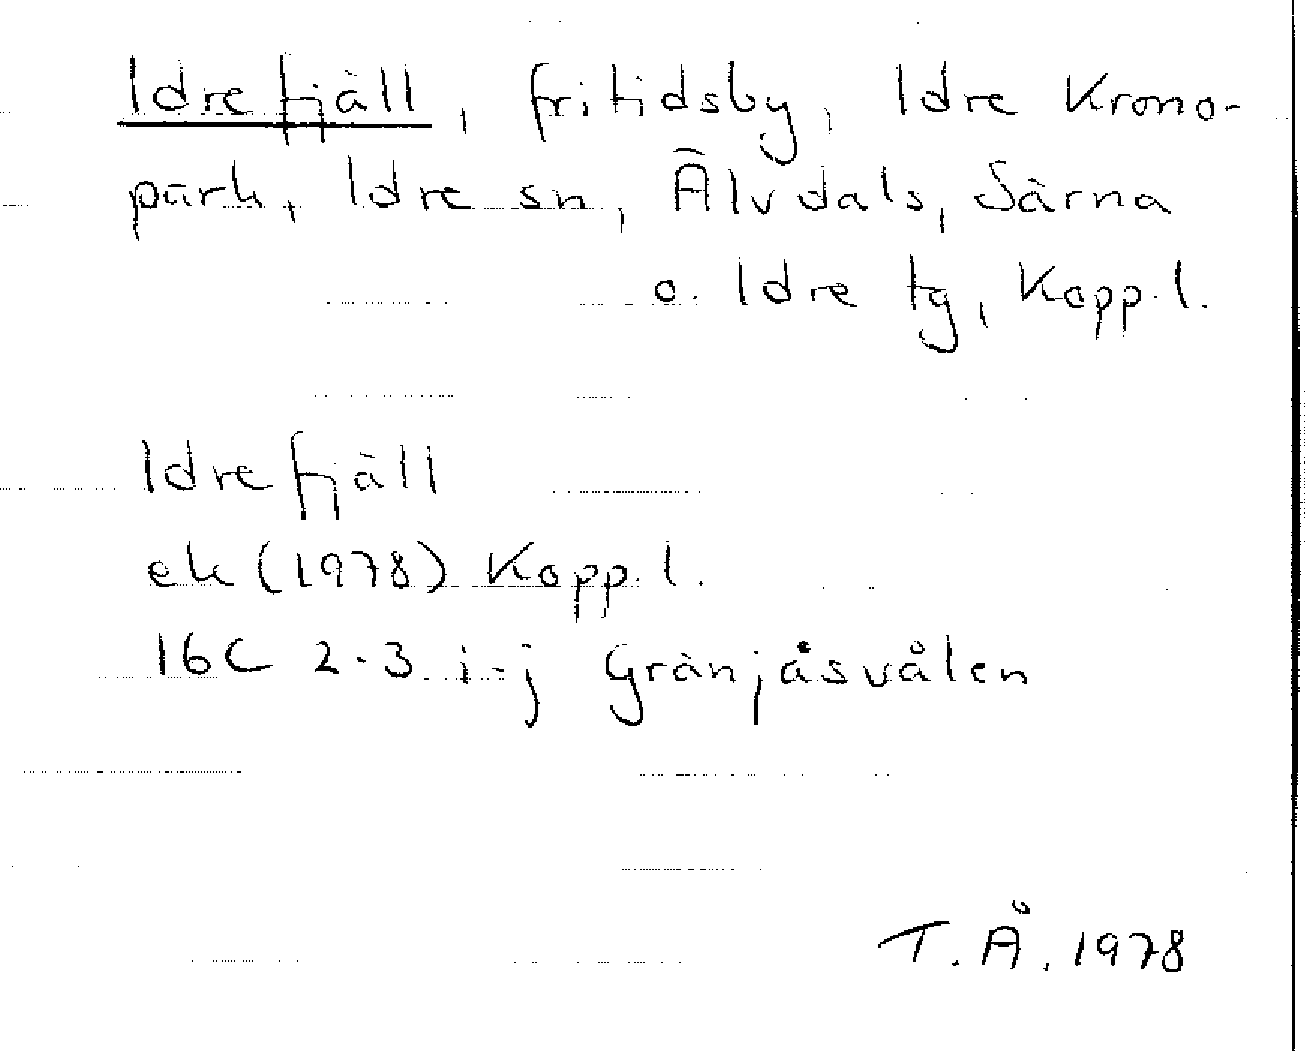 Idrefjäll, fritidsby, Idre Krono-
park, Idre sn, Älvdals, Särna
o. Idre tg, Kopp.l.
Idrefjäll
ek (1978) Kopp.l.
16C 2-3 i-j Gränjåsvålen
T.Å. 1978